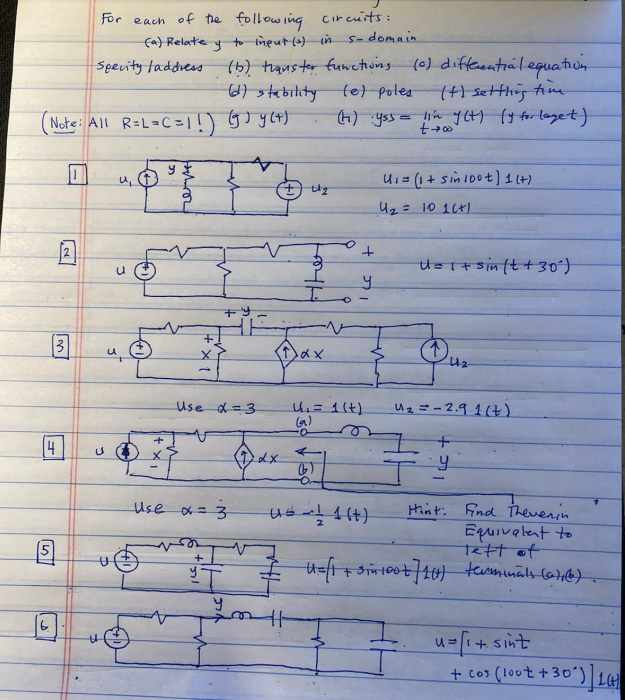 For each of the following circuits:
(a) Relate y to input(s) in s-domain
Specify/address (b) transfer functions (c) differential equation
(d) stability (e) poles (f) settling time
(Note: All R=L=C=1!) (g) y(t) (h) yss = lim t→∞ y(t) (y for large t)
1 u₁ y u₂ u₁ = (1 + sin100t) 1(t)
u₂ = 10 1(t)
2 u + y − u = 1 + sin(t + 30°)
3 u₁ + x − + y − αx u₂
Use α = 3 u₁ = 1(t) u₂ = -2.9 1(t)
4 u + x − αx (a) (b) + y −
Use α = 3 u = -½ 1(t) Hint: Find Thevenin
Equivalent to
left of
terminals (a),(b).
5 u + y − u = [1 + sin100t] 1(t)
6 u y u = [1 + sint
+ cos(100t + 30°)] 1(t)